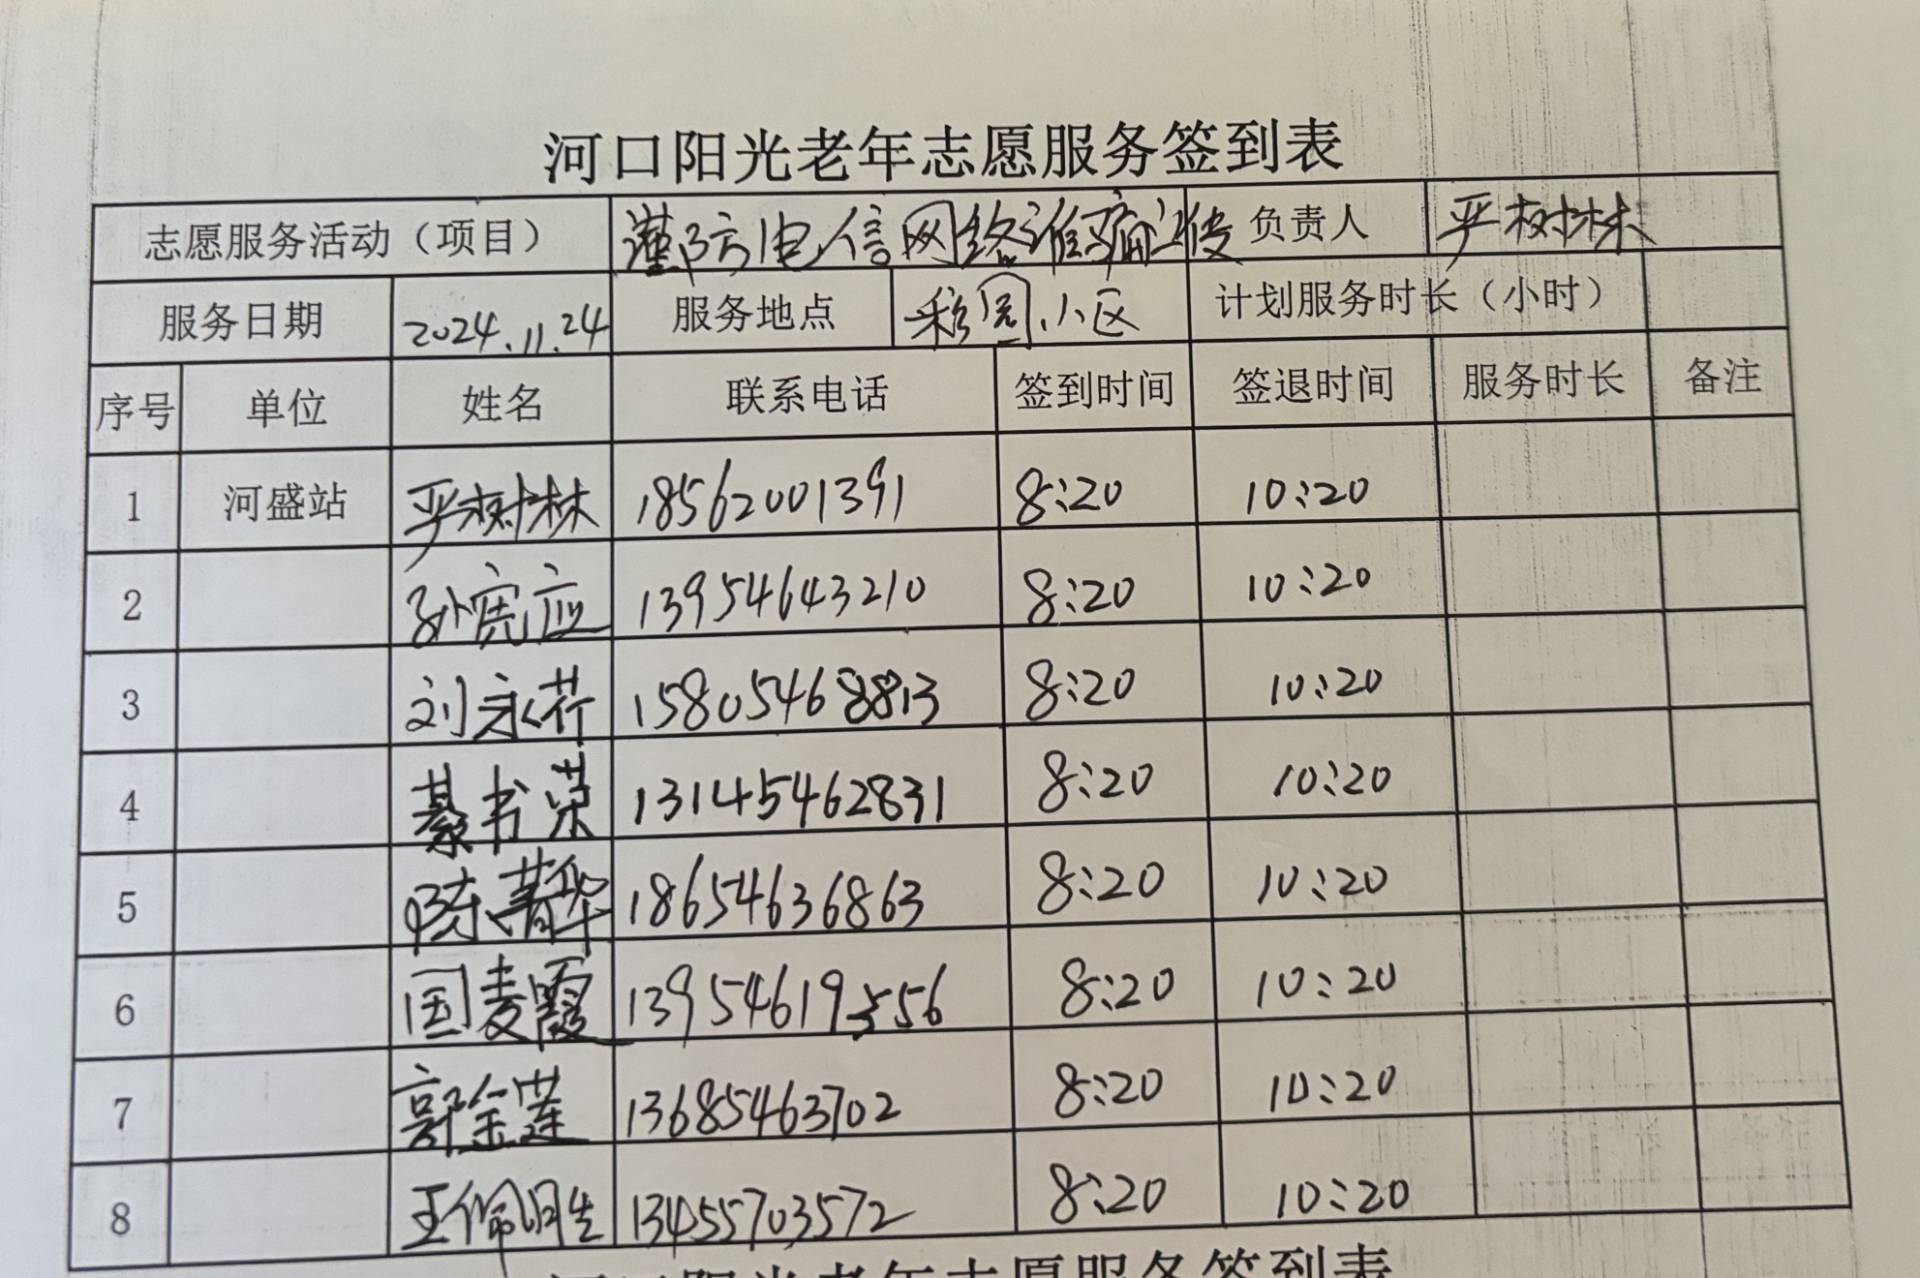 河口阳光老年志愿服务签到表
志愿服务活动（项目） 谨防电信网络诈骗宣传 负责人 严树林
服务日期 2024.11.24 服务地点 彩园小区 计划服务时长（小时）
序号 单位 姓名 联系电话 签到时间 签退时间 服务时长 备注
1 河盛站 严树林 18562001391 8:20 10:20
2 孙宪应 13954643210 8:20 10:20
3 刘永芹 15805468813 8:20 10:20
4 綦书荣 13145462831 8:20 10:20
5 陈菁华 18654636863 8:20 10:20
6 国麦霞 13954619556 8:20 10:20
7 郭金莲 13685463702 8:20 10:20
8 王佩 13455703572 8:20 10:20
河口阳光老年志愿服务签到表